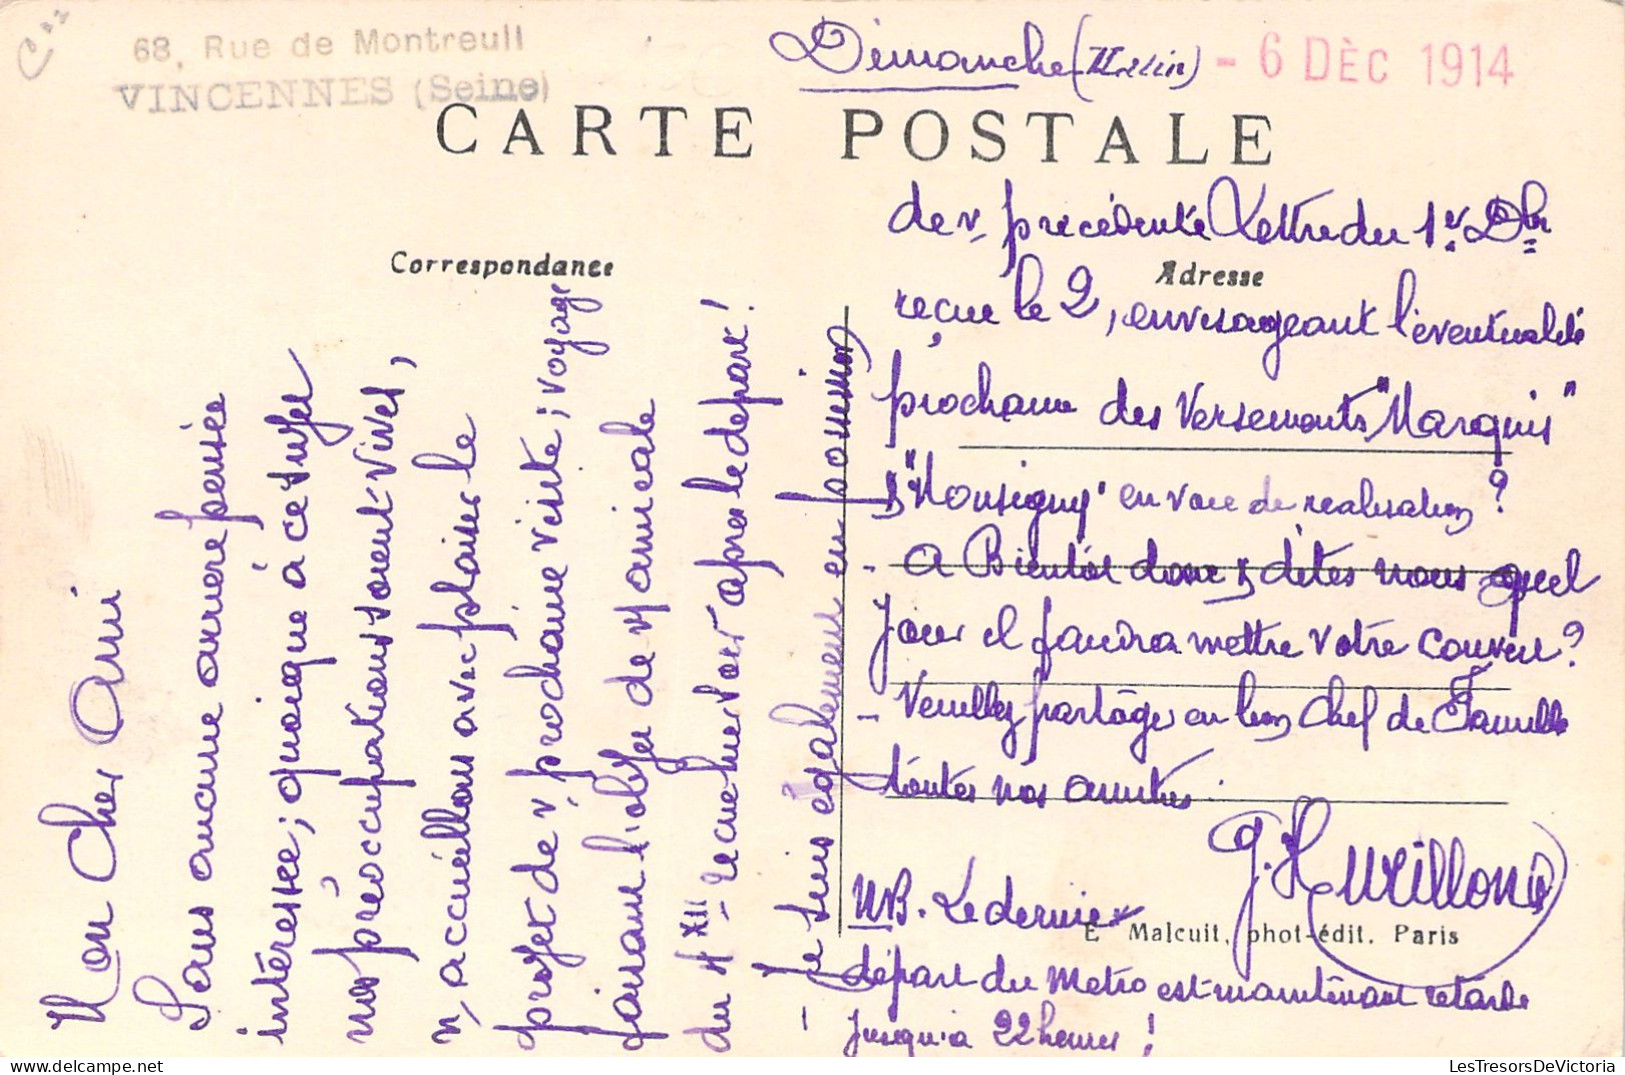 68, Rue de Montreuil
VINCENNES (Seine)
Dimanche (Matin) - 6 DÈC 1914
CARTE POSTALE
Correspondance
Adresse
Mon Cher Ami
Sans aucune arrière pensée
intéressée; quoique à ce sujet
nos préoccupations soient vives,
n/ accueillons avec plaisir le
projet de v/ prochaine visite; voyage
faisant l'objet de v/ amicale
du 4 XII recue hier soir après le départ!
- Je suis également en possession
de v/ précédente Lettre du 1er Dbre
reçue le 2, envisageant l'éventualité
prochaine des Versements "Marquis"
& "Monsigny" en voie de realisation?
- A Bientôt donc & dites nous quel
jour il faudra mettre votre couvert?
- Veuillez partager en bon Chef de Famille
toutes nos amitiés.
NB. Le dernier
départ du Metro est maintenant retardé
jusqu'à 22 heures!
E Malcuit, phot-édit. Paris
LesTresorsDeVictoria